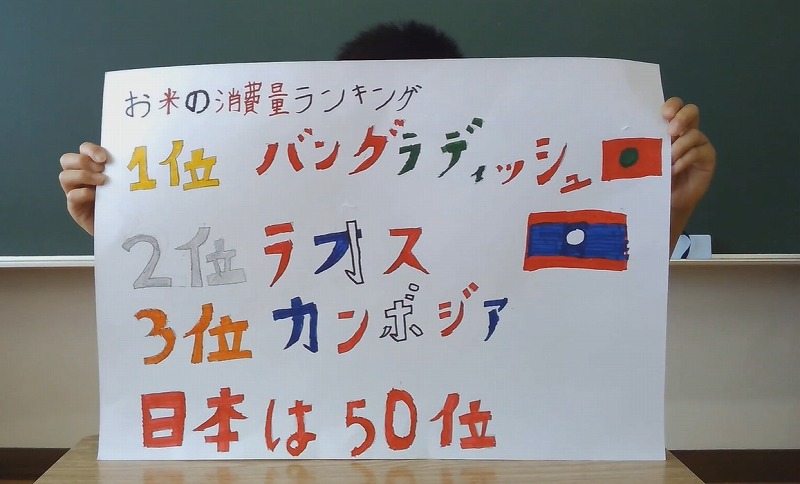 お米の消費量ランキング
1位 バングラディッシュ
2位 ラオス
3位 カンボジア
日本は50位